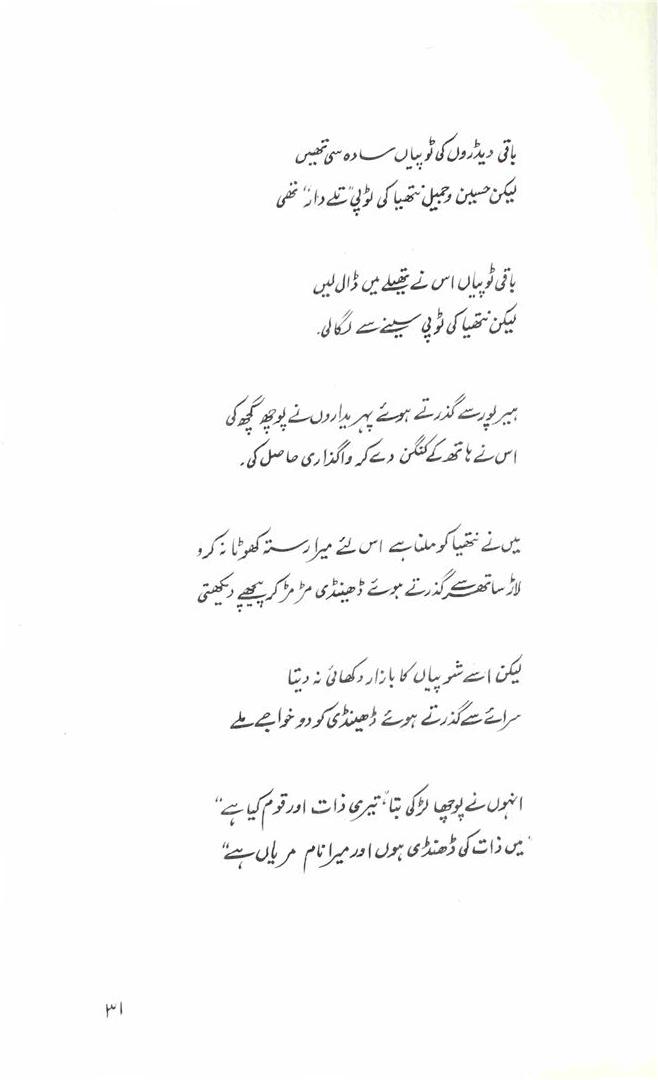 باقی دیڈروں کی ٹوپیاں سادہ سی تھیں
لیکن حسین و جمیل نتھیا کی ٹوپی "تلے دار" تھی
باقی ٹوپیاں اس نے تھیلے میں ڈال لیں
لیکن نتھیا کی ٹوپی سینے سے لگا لی۔
ہیرپور سے گذرتے ہوئے پہریداروں نے پوچھ گچھ کی
اس نے ہاتھ کے کنگن دے کر واگذاری حاصل کی۔
میں نے نتھیا کو ملنا ہے اس لئے میرا رستہ کھوٹا نہ کرو
لاڑ ساتھر سے گذرتے ہوئے ڈھینڈی مڑ مڑ کر پیچھے دیکھتی
لیکن اسے شوپیاں کا بازار دکھائی نہ دیتا
سرائے سے گذرتے ہوئے ڈھینڈی کو دو خواجے ملے
انہوں نے پوچھا لڑکی بتا "تیری ذات اور قوم کیا ہے"
"میں ذات کی ڈھنڈی ہوں اور میرا نام مریاں ہے"
۳۱